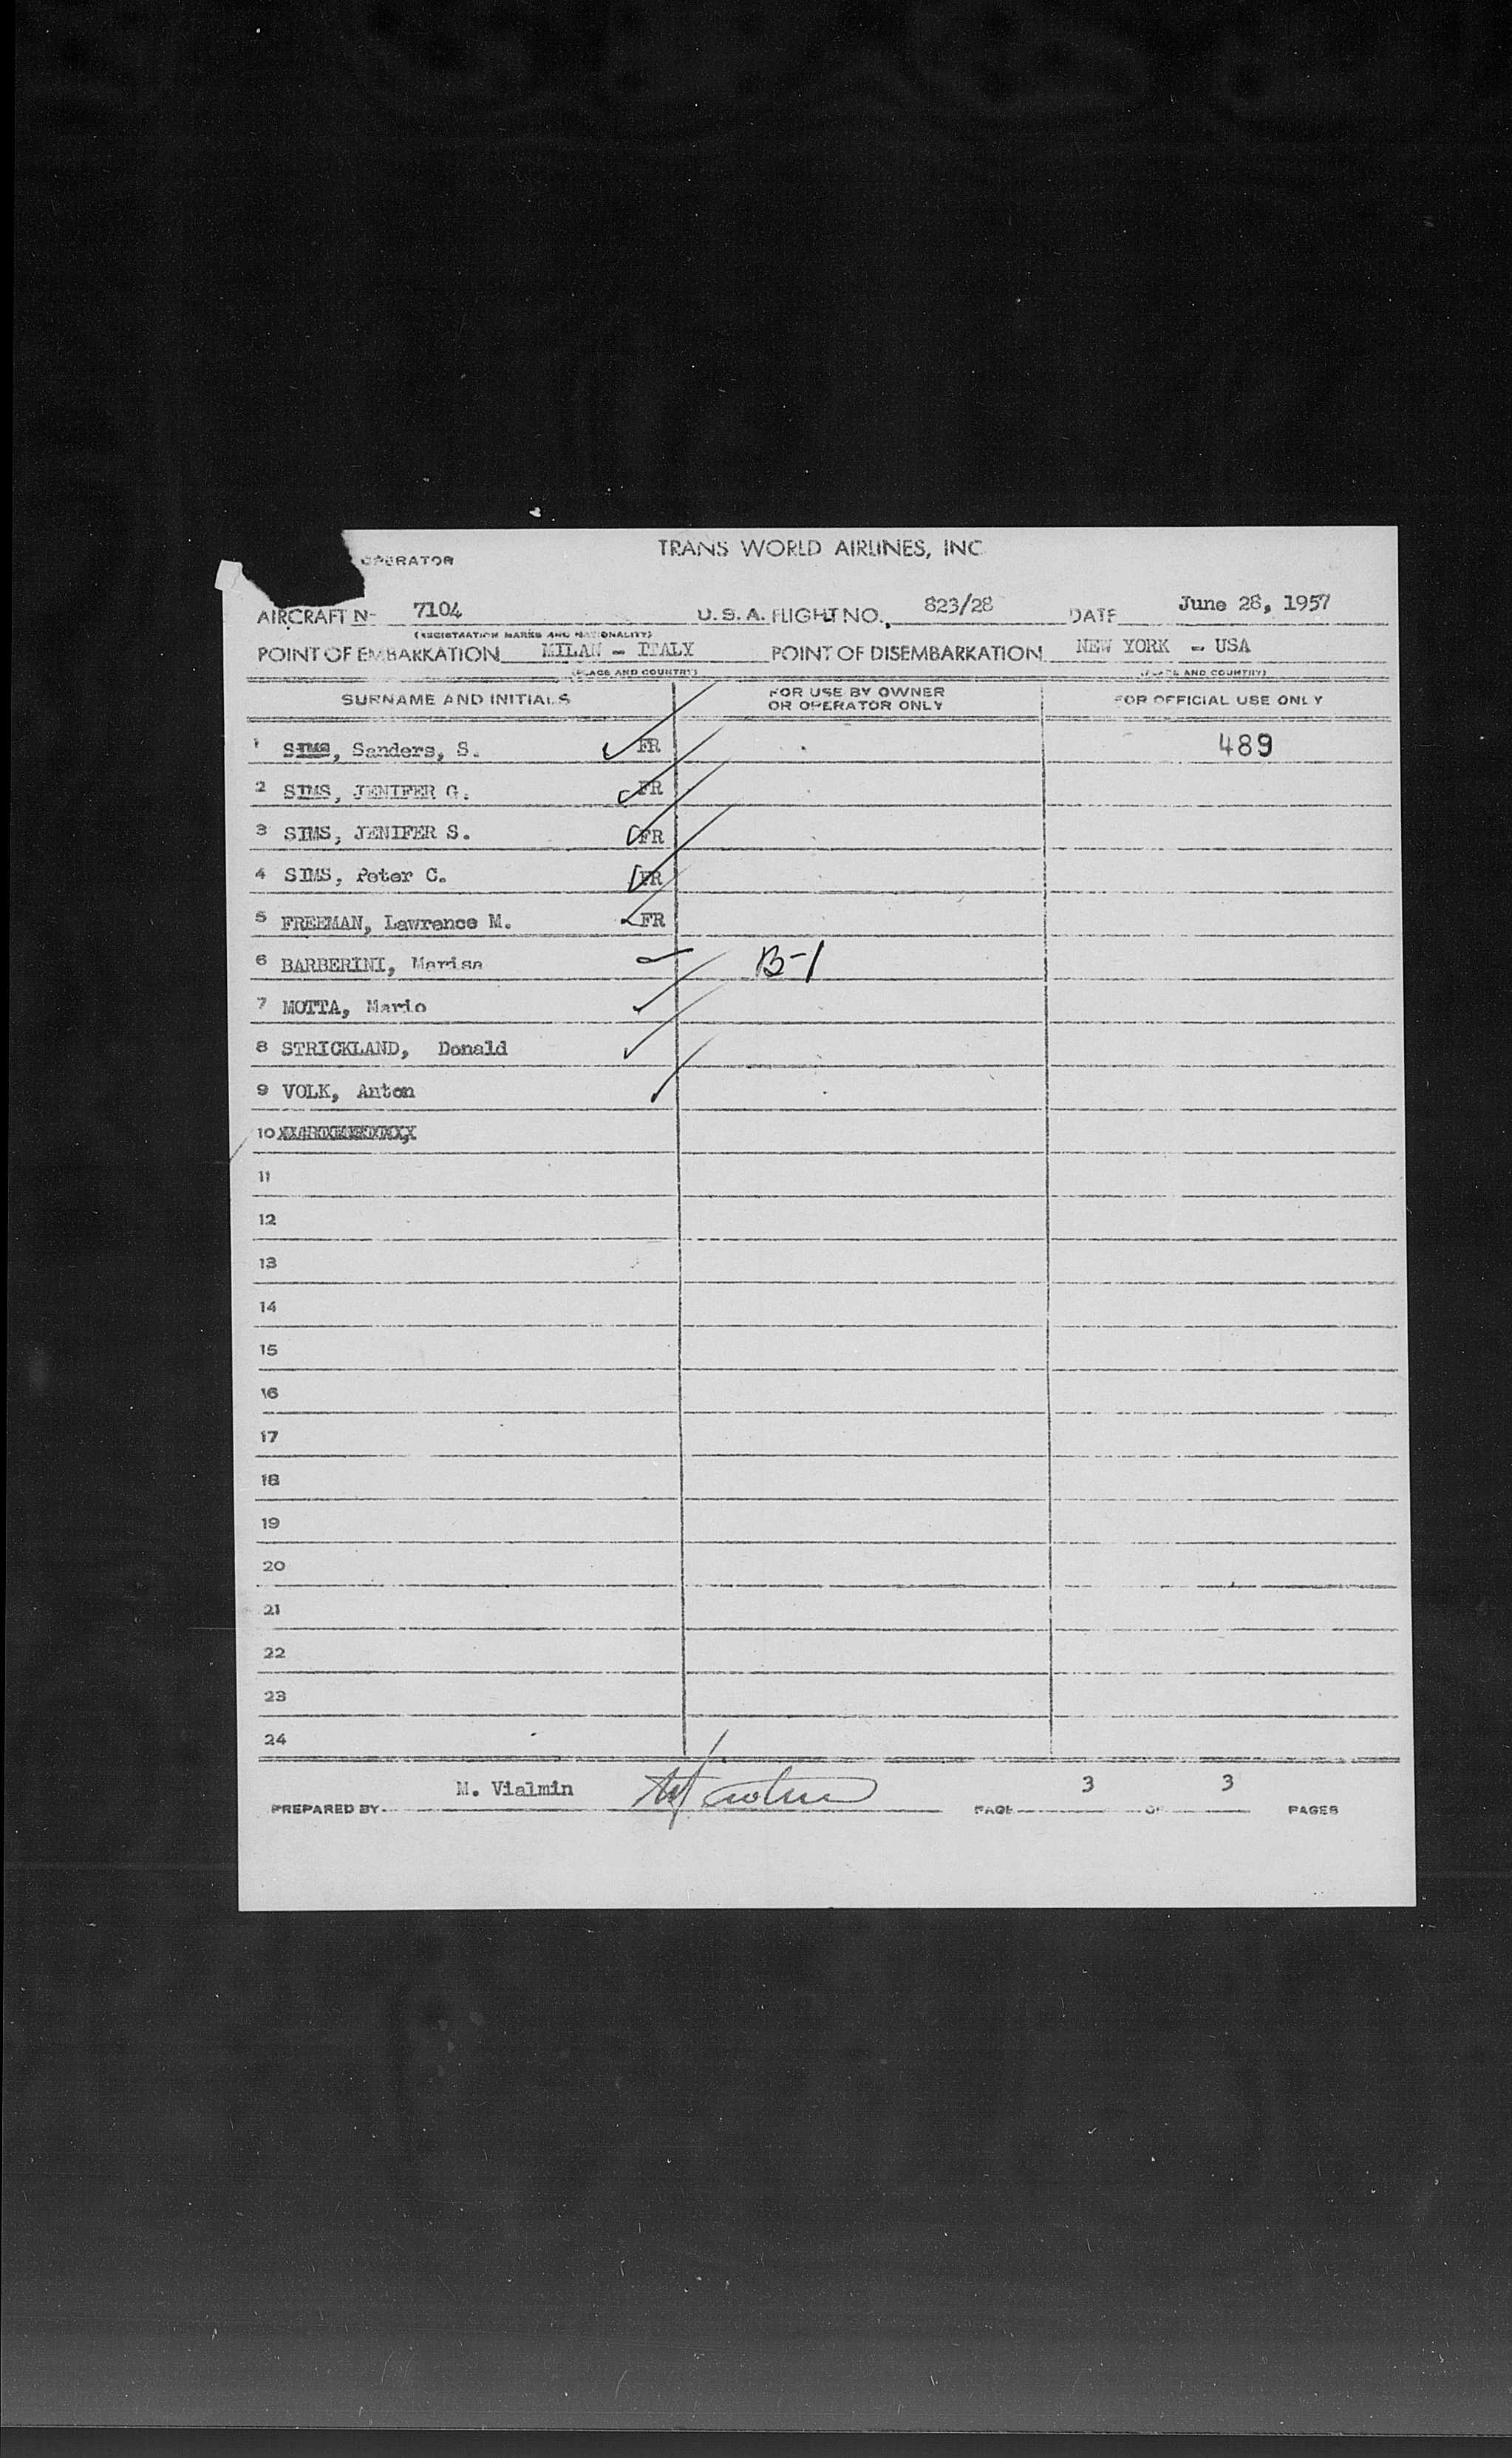 OPERATOR TRANS WORLD AIRLINES, INC
AIRCRAFT N- 7104 U. S. A. FLIGHT NO. 823/28 DATE June 28, 1957
(REGISTRATION MARKS AND NATIONALITY)
POINT OF EMBARKATION MILAN - ITALY POINT OF DISEMBARKATION NEW YORK - USA
(PLACE AND COUNTRY) (PLACE AND COUNTRY)
SURNAME AND INITIALS FOR USE BY OWNER OR OPERATOR ONLY FOR OFFICIAL USE ONLY
1 SIMS, Sanders, S. FR 489
2 SIMS, JENIFER G. FR
3 SIMS, JENIFER S. FR
4 SIMS, Peter C. FR
5 FREEMAN, Lawrence M. FR
6 BARBERINI, Marisa B-1
7 MOTTA, Mario
8 STRICKLAND, Donald
9 VOLK, Anton
10
11
12
13
14
15
16
17
18
19
20
21
22
23
24
PREPARED BY M. Vialmin PAGE 3 OF 3 PAGES